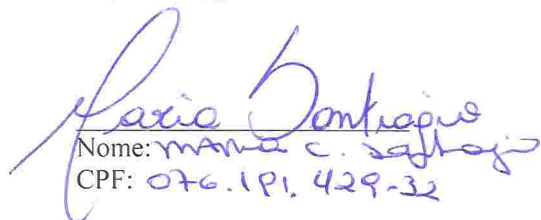 Maria Santiago
Nome: MARIA C. Santiago
CPF: 076.191.429-32